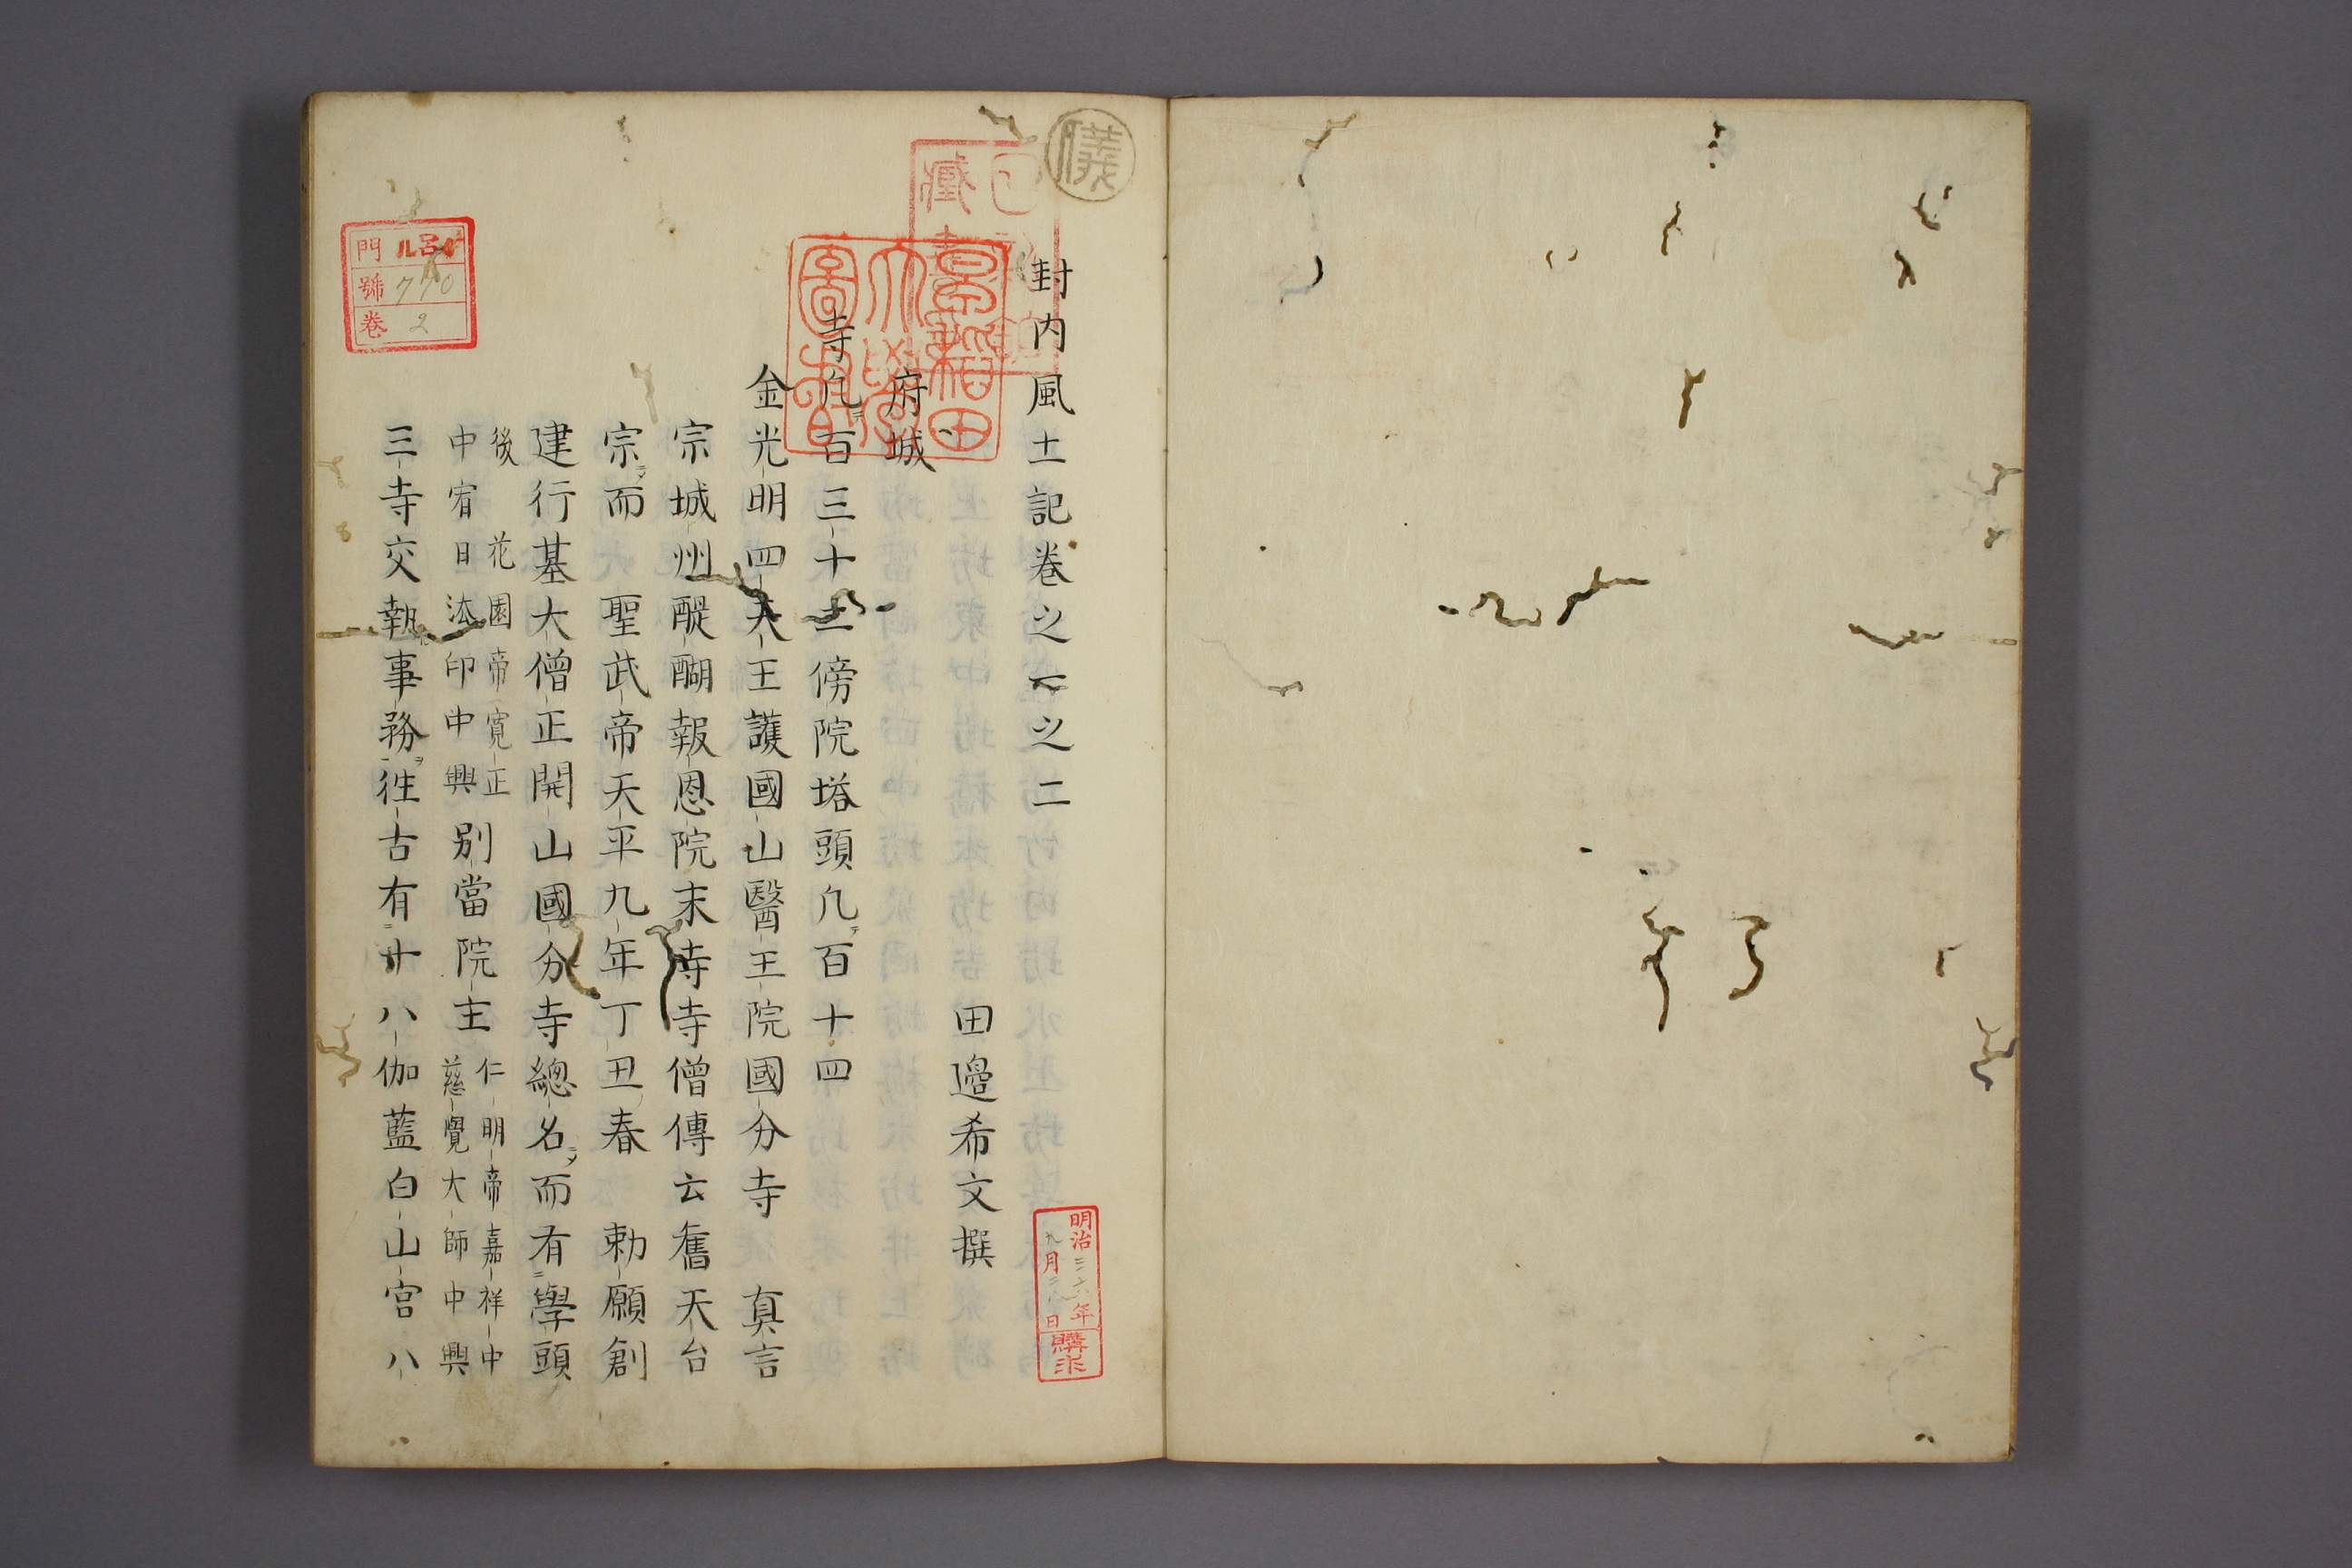 封内風土記巻之一之二
田邉希文撰
府城
寺凢百三十三傍院塔頭凢百十四
金光明四天王護國山醫王院國分寺 真言
宗城州醍醐報恩院末寺寺僧傳云舊天台
宗而 聖武帝天平九年丁丑春 勅願創
建行基大僧正開山國分寺總名而有學頭
後花園帝寛正
中宥日法印中興
別當院主
仁明帝嘉祥中
慈覺大師中興
三寺交執事務往古有廿八伽藍白山宮八
早稲田大學圖書
門 ル呂4
號 770
巻 2
明治三十六年
九月二八日
購求